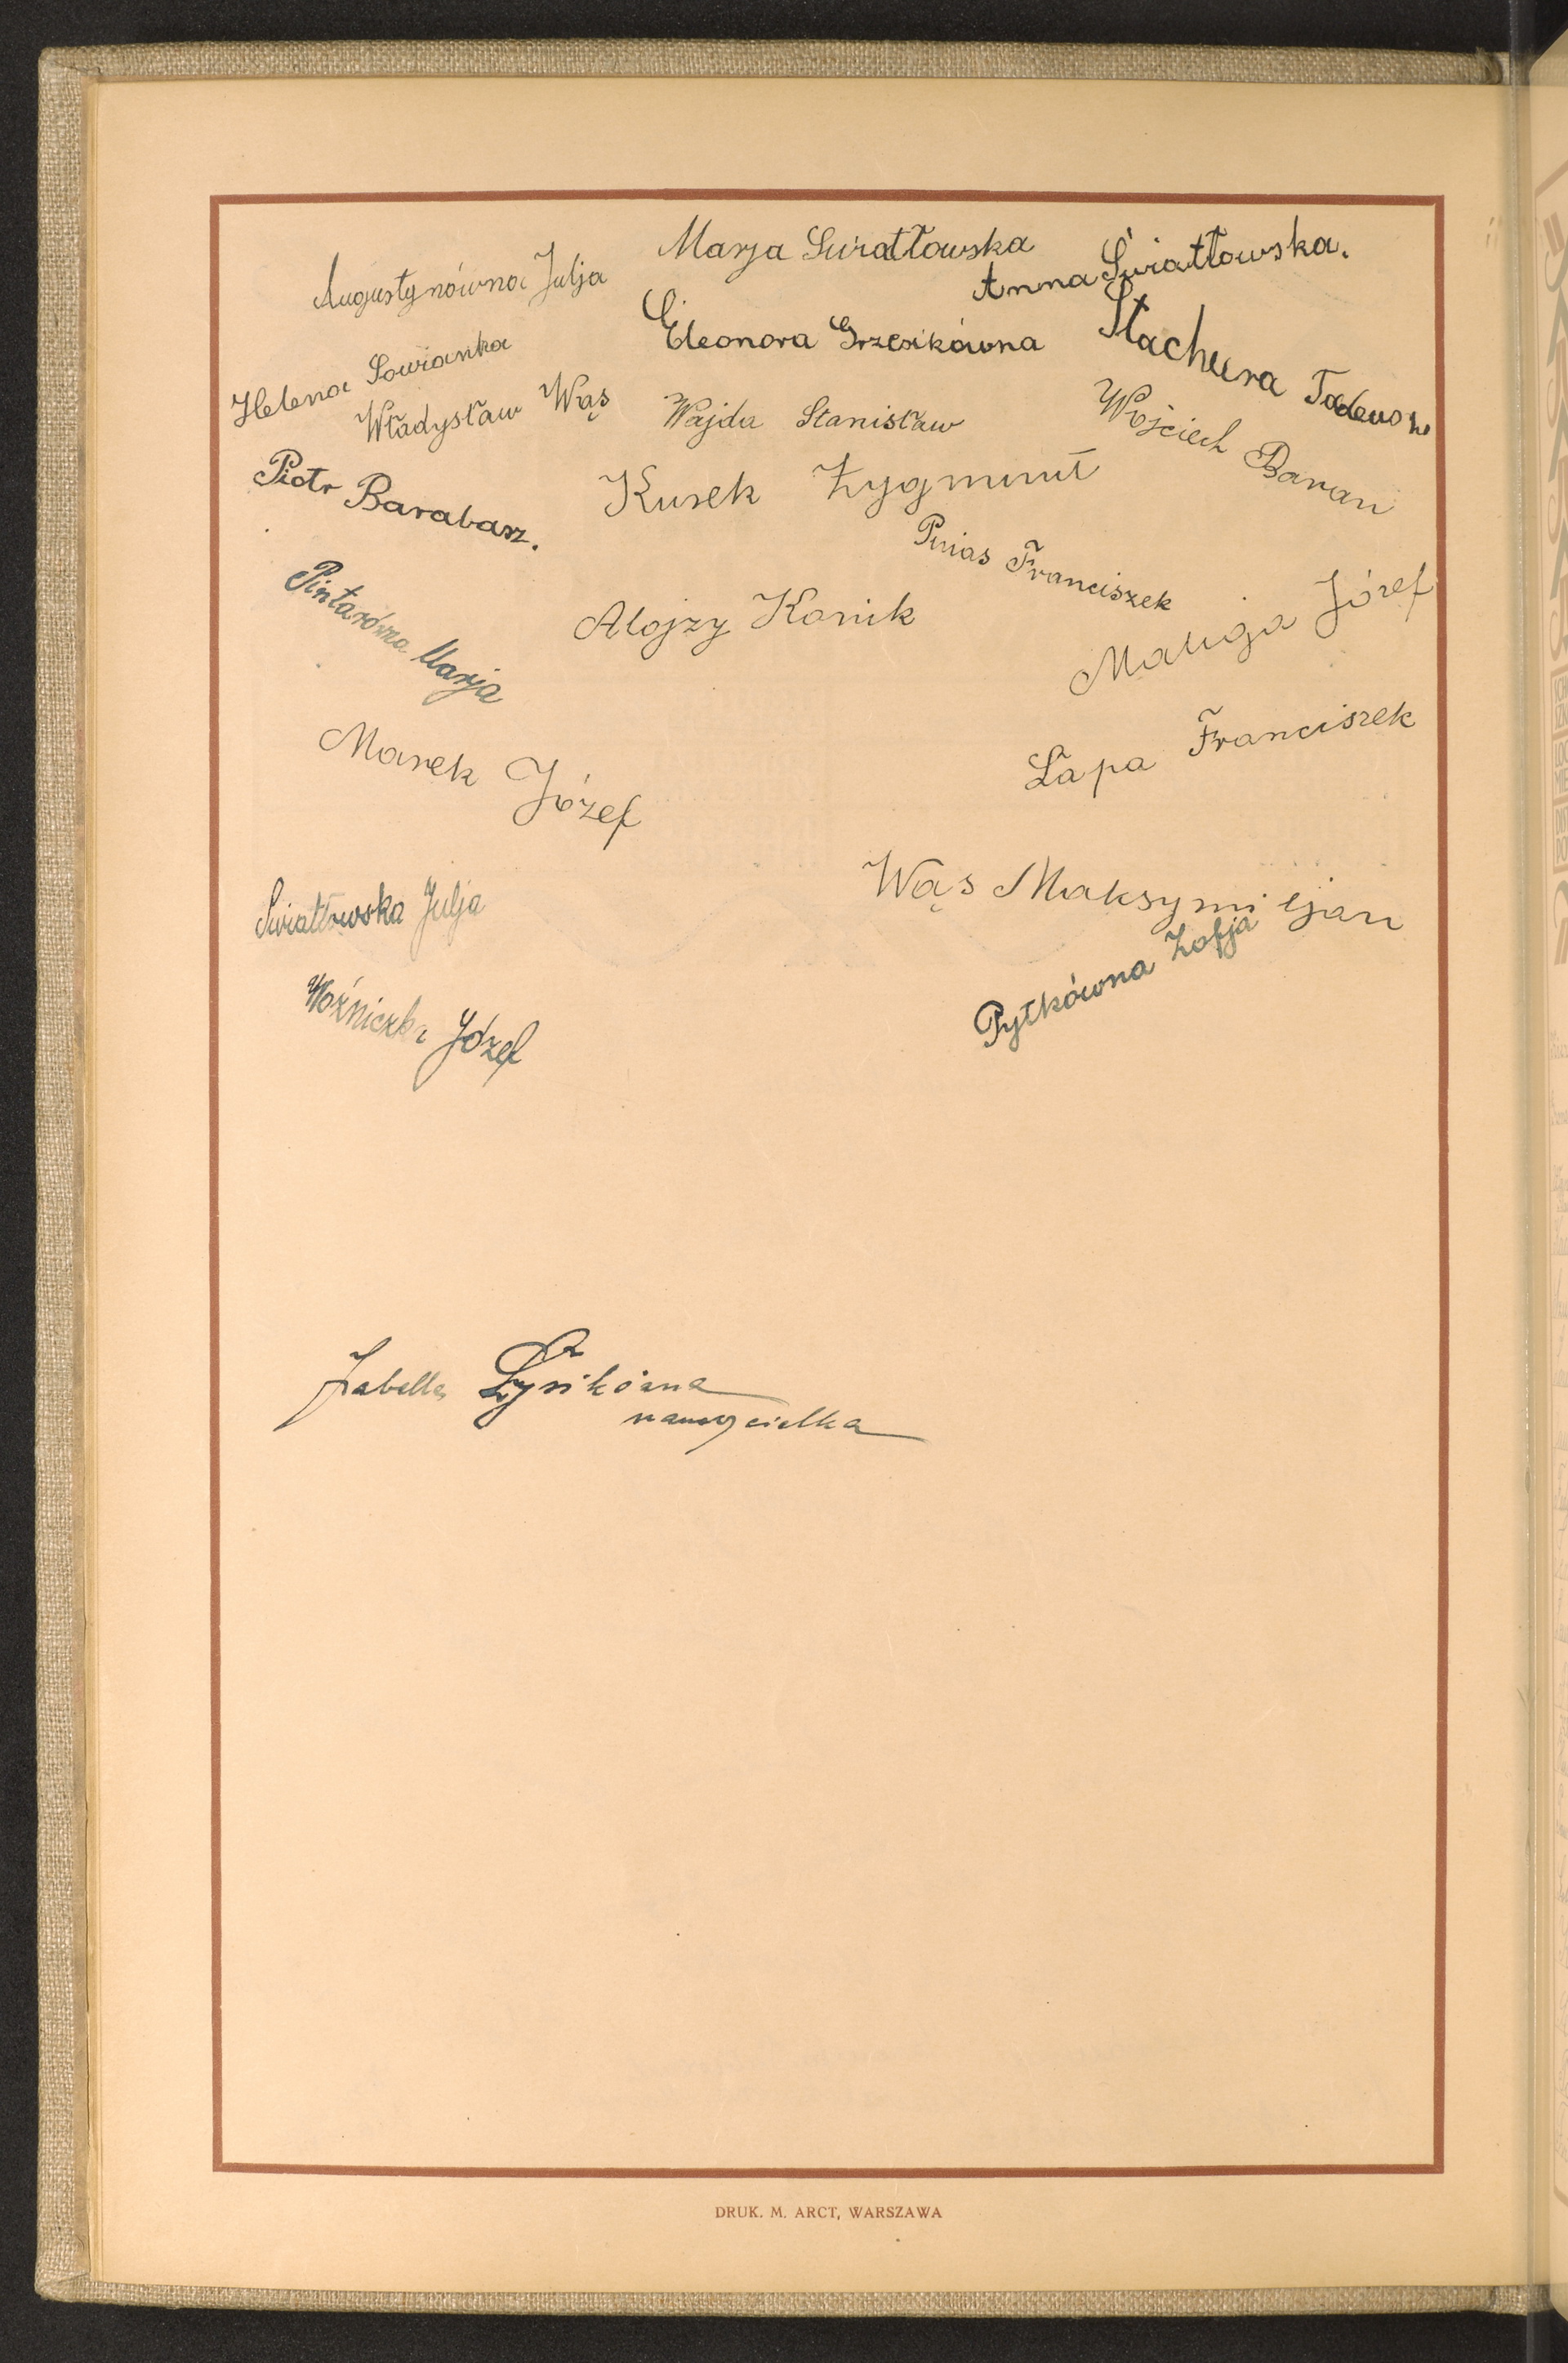 Marja Światłowska
Augustynówna Julja
Anna Światłowska.
Eleonora Grzesikówna
Stachura Tadeusz
Helena Sowianka
Władysław Wąs
Wajda Stanisław
Wojciech Baran
Piotr Barabasz.
Kusek Zygmunt
Franciszek
Pintarówna Marja
Alojzy Konik
Maliga Józef
Marek Józef
Łapa Franciszek
Światłowska Julja
Wąs Maksymiljan
Pytkówna Zofja
Woźniczka Józef
Izabella Łysikówna
nauczycielka
DRUK. M. ARCT, WARSZAWA